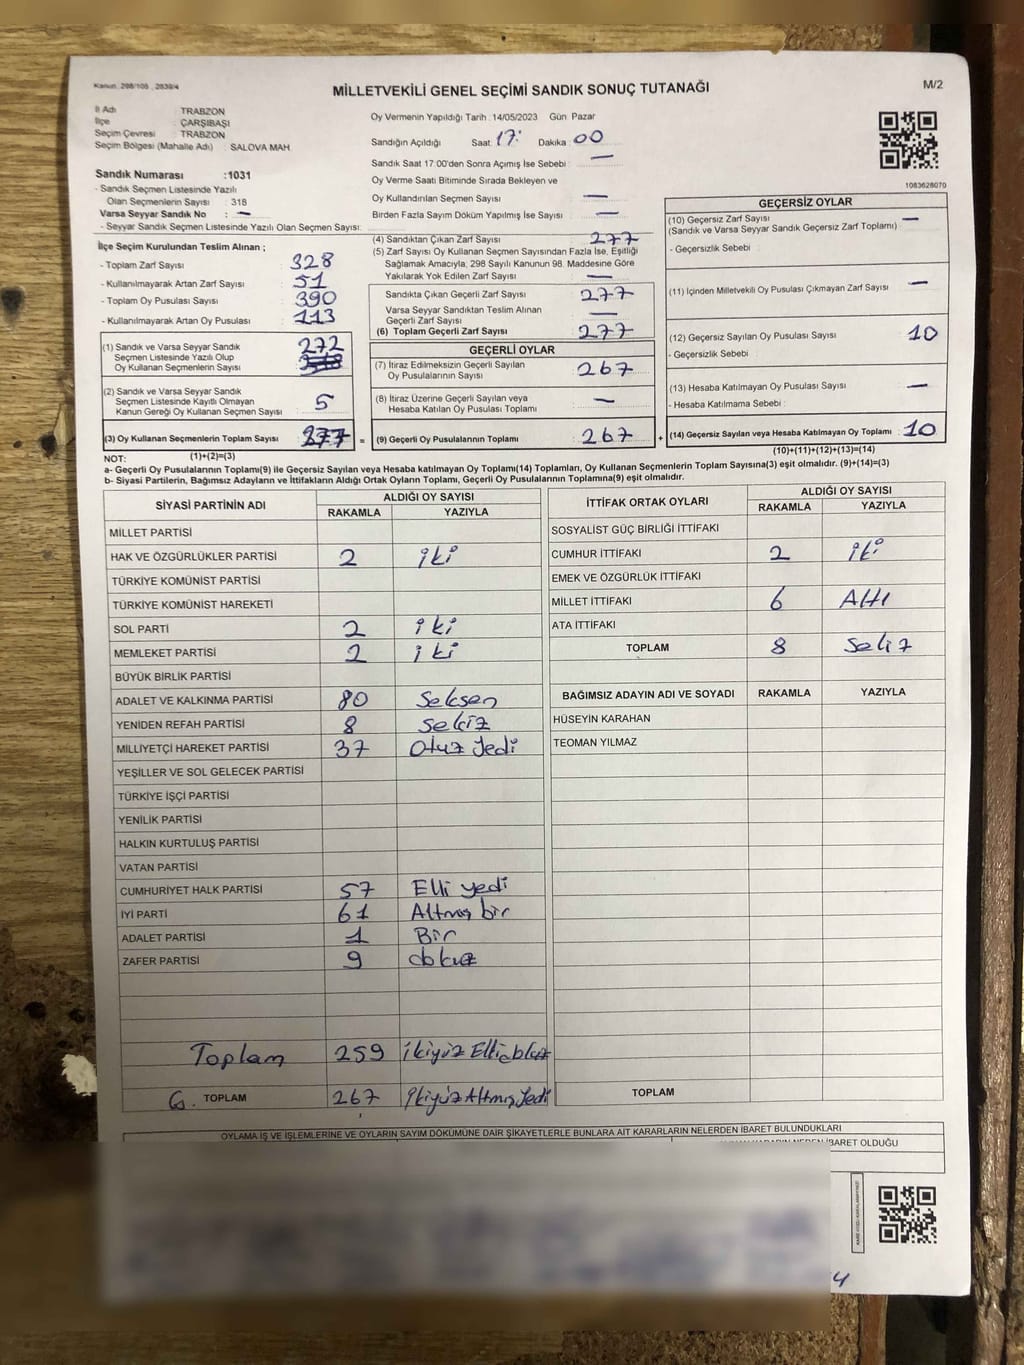 Kanun: 298/105 , 2839/4
MİLLETVEKİLİ GENEL SEÇİMİ SANDIK SONUÇ TUTANAĞI
M/2
İl Adı : TRABZON
İlçe : ÇARŞIBAŞI
Seçim Çevresi : TRABZON
Seçim Bölgesi (Mahalle Adı) : SALOVA MAH
Sandık Numarası :1031
- Sandık Seçmen Listesinde Yazılı
Olan Seçmenlerin Sayısı : 318
Varsa Seyyar Sandık No : —
- Seyyar Sandık Seçmen Listesinde Yazılı Olan Seçmen Sayısı:
Oy Vermenin Yapıldığı Tarih : 14/05/2023 Gün Pazar
Sandığın Açıldığı Saat: 17: Dakika : 00
Sandık Saat 17.00'den Sonra Açımış İse Sebebi : —
Oy Verme Saati Bitiminde Sırada Bekleyen ve
Oy Kullandırılan Seçmen Sayısı —
Birden Fazla Sayım Döküm Yapılmış İse Sayısı —
1083628070
İlçe Seçim Kurulundan Teslim Alınan ;
- Toplam Zarf Sayısı 328
- Kullanılmayarak Artan Zarf Sayısı 51
- Toplam Oy Pusulası Sayısı 390
- Kullanılmayarak Artan Oy Pusulası 113
(1) Sandık ve Varsa Seyyar Sandık 272
Seçmen Listesinde Yazılı Olup
Oy Kullanan Seçmenlerin Sayısı
(2) Sandık ve Varsa Seyyar Sandık
Seçmen Listesinde Kayıtlı Olmayan
Kanun Gereği Oy Kullanan Seçmen Sayısı 5
(3) Oy Kullanan Seçmenlerin Toplam Sayısı 277 =
(1)+(2)=(3)
(4) Sandıktan Çıkan Zarf Sayısı 277
(5) Zarf Sayısı Oy Kullanan Seçmen Sayısından Fazla İse, Eşitliği
Sağlamak Amacıyla; 298 Sayılı Kanunun 98. Maddesine Göre
Yakılarak Yok Edilen Zarf Sayısı —
Sandıkta Çıkan Geçerli Zarf Sayısı 277
Varsa Seyyar Sandıktan Teslim Alınan
Geçerli Zarf Sayısı —
(6) Toplam Geçerli Zarf Sayısı 277
GEÇERLİ OYLAR
(7) İtiraz Edilmeksizin Geçerli Sayılan
Oy Pusulalarının Sayısı 267
(8) İtiraz Üzerine Geçerli Sayılan veya
Hesaba Katılan Oy Pusulası Toplamı —
(9) Geçerli Oy Pusulalarının Toplamı 267 +
GEÇERSİZ OYLAR
(10) Geçersiz Zarf Sayısı —
(Sandık ve Varsa Seyyar Sandık Geçersiz Zarf Toplamı) :
- Geçersizlik Sebebi :
(11) İçinden Milletvekili Oy Pusulası Çıkmayan Zarf Sayısı —
(12) Geçersiz Sayılan Oy Pusulası Sayısı 10
- Geçersizlik Sebebi
(13) Hesaba Katılmayan Oy Pusulası Sayısı —
- Hesaba Katılmama Sebebi :
(14) Geçersiz Sayılan veya Hesaba Katılmayan Oy Toplamı 10
(10)+(11)+(12)+(13)=(14)
NOT:
a- Geçerli Oy Pusulalarının Toplamı(9) ile Geçersiz Sayılan veya Hesaba katılmayan Oy Toplamı(14) Toplamları, Oy Kullanan Seçmenlerin Toplam Sayısına(3) eşit olmalıdır. (9)+(14)=(3)
b- Siyasi Partilerin, Bağımsız Adayların ve İttifakların Aldığı Ortak Oyların Toplamı, Geçerli Oy Pusulalarının Toplamına(9) eşit olmalıdır.
SİYASİ PARTİNİN ADI ALDIĞI OY SAYISI
RAKAMLA YAZIYLA
MİLLET PARTİSİ
HAK VE ÖZGÜRLÜKLER PARTİSİ 2 iki
TÜRKİYE KOMÜNİST PARTİSİ
TÜRKİYE KOMÜNİST HAREKETİ
SOL PARTİ 2 iki
MEMLEKET PARTİSİ 2 iki
BÜYÜK BİRLİK PARTİSİ
ADALET VE KALKINMA PARTİSİ 80 Seksen
YENİDEN REFAH PARTİSİ 8 sekiz
MİLLİYETÇİ HAREKET PARTİSİ 37 Otuz Yedi
YEŞİLLER VE SOL GELECEK PARTİSİ
TÜRKİYE İŞÇİ PARTİSİ
YENİLİK PARTİSİ
HALKIN KURTULUŞ PARTİSİ
VATAN PARTİSİ
CUMHURİYET HALK PARTİSİ 57 Elli yedi
İYİ PARTİ 61 Altmış bir
ADALET PARTİSİ 1 Bir
ZAFER PARTİSİ 9 dokuz
Toplam 259 ikiyüz Elli dokuz
G. TOPLAM 267 ikiyüz Altmış Yedi
İTTİFAK ORTAK OYLARI ALDIĞI OY SAYISI
RAKAMLA YAZIYLA
SOSYALİST GÜÇ BİRLİĞİ İTTİFAKI
CUMHUR İTTİFAKI 2 iki
EMEK VE ÖZGÜRLÜK İTTİFAKI
MİLLET İTTİFAKI 6 Altı
ATA İTTİFAKI
TOPLAM 8 Sekiz
BAĞIMSIZ ADAYIN ADI VE SOYADI RAKAMLA YAZIYLA
HÜSEYİN KARAHAN
TEOMAN YILMAZ
TOPLAM
OYLAMA İŞ VE İŞLEMLERİNE VE OYLARIN SAYIM DÖKÜMÜNE DAİR ŞİKAYETLERLE BUNLARA AİT KARARLARIN NELERDEN İBARET BULUNDUKLARI
NEDEN İBARET OLDUĞU